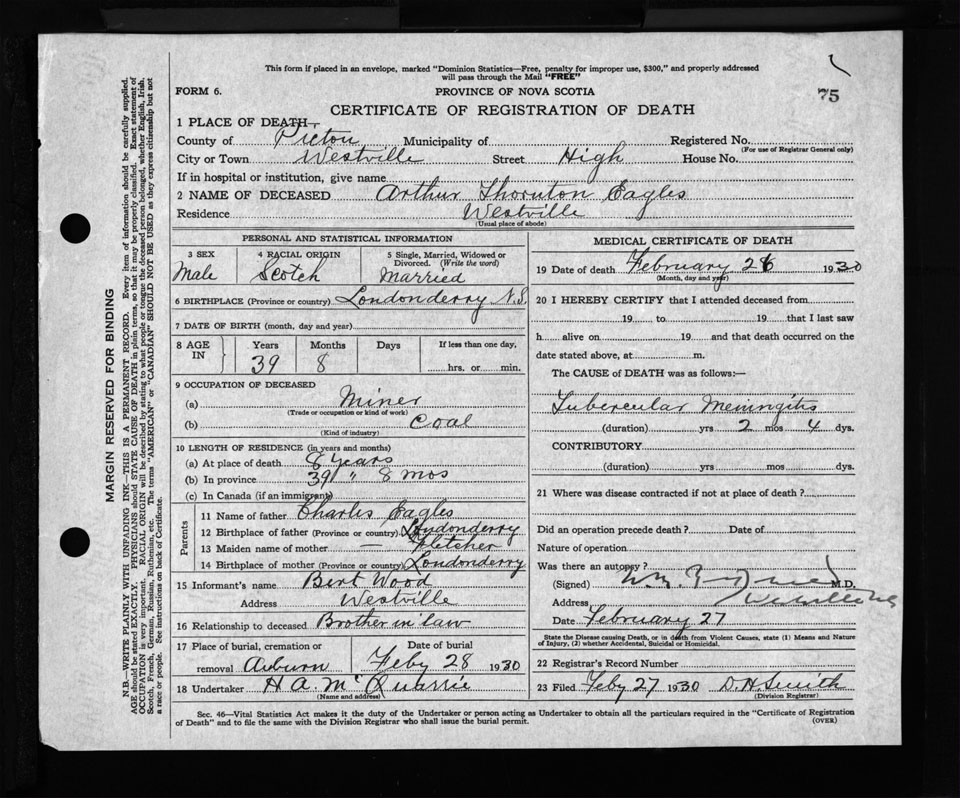 This form if placed in an envelope, marked "Dominion Statistics—Free, penalty for improper use, $300," and properly addressed
will pass through the Mail "FREE"
75
FORM 6.
PROVINCE OF NOVA SCOTIA
CERTIFICATE OF REGISTRATION OF DEATH
1 PLACE OF DEATH
County of Pictou Municipality of Registered No.
(For use of Registrar General only)
City or Town Westville Street High House No.
If in hospital or institution, give name
2 NAME OF DECEASED Arthur Thornton Eagles
Residence Westville
(Usual place of abode)
MARGIN RESERVED FOR BINDING
N.B.—WRITE PLAINLY WITH UNFADING INK—THIS IS A PERMANENT RECORD. Every item of information should be carefully supplied.
AGE should be stated EXACTLY. PHYSICIANS should STATE CAUSE OF DEATH in plain terms, so that it may be properly classified. Exact statement of
OCCUPATION is very important. RACIAL ORIGIN will be described by stating to what people or tongue the deceased person belonged, whether English, Irish,
Scotch, French, German, Russian, Ruthenian, etc. The terms "AMERICAN" or "CANADIAN" SHOULD NOT BE USED as they express citizenship but not
a race or people. See instructions on back of Certificate.
PERSONAL AND STATISTICAL INFORMATION
3 SEX
Male
4 RACIAL ORIGIN
Scotch
5 Single, Married, Widowed or
Divorced. (Write the word)
Married
6 BIRTHPLACE (Province or country) Londonderry N.S.
7 DATE OF BIRTH (month, day and year)
8 AGE IN
Years Months Days If less than one day,
39 8 hrs. or min.
9 OCCUPATION OF DECEASED
(a) Miner
(Trade or occupation or kind of work)
(b) Coal
(Kind of industry)
10 LENGTH OF RESIDENCE (in years and months)
(a) At place of death 8 years
(b) In province 39 " 8 mos
(c) In Canada (if an immigrant)
Parents
11 Name of father Charles Eagles
12 Birthplace of father (Province or country) Londonderry
13 Maiden name of mother — Fletcher
14 Birthplace of mother (Province or country) Londonderry
15 Informant's name Bert Wood
Address Westville
16 Relationship to deceased Brother in law
17 Place of burial, cremation or Date of burial
removal Auburn Feby 28 1930
18 Undertaker H A. McQuarrie
(Name and address)
MEDICAL CERTIFICATE OF DEATH
19 Date of death February 26 1930
(Month, day and year)
20 I HEREBY CERTIFY that I attended deceased from
19 to 19 that I last saw
h alive on 19 and that death occurred on the
date stated above, at m.
The CAUSE of DEATH was as follows:—
Tubercular Meningitis
(duration) yrs 2 mos 4 dys.
CONTRIBUTORY
(duration) yrs mos dys.
21 Where was disease contracted if not at place of death?
Did an operation precede death? Date of
Nature of operation
Was there an autopsy?
(Signed) M.D.
Address
Date February 27
State the Disease causing Death, or in death from Violent Causes, state (1) Means and Nature
of Injury, (2) whether Accidental, Suicidal or Homicidal.
22 Registrar's Record Number
23 Filed Feby 27 1930 D. H. Smith
(Division Registrar)
Sec. 46—Vital Statistics Act makes it the duty of the Undertaker or person acting as Undertaker to obtain all the particulars required in the "Certificate of Registration
of Death" and to file the same with the Division Registrar who shall issue the burial permit.
(OVER)